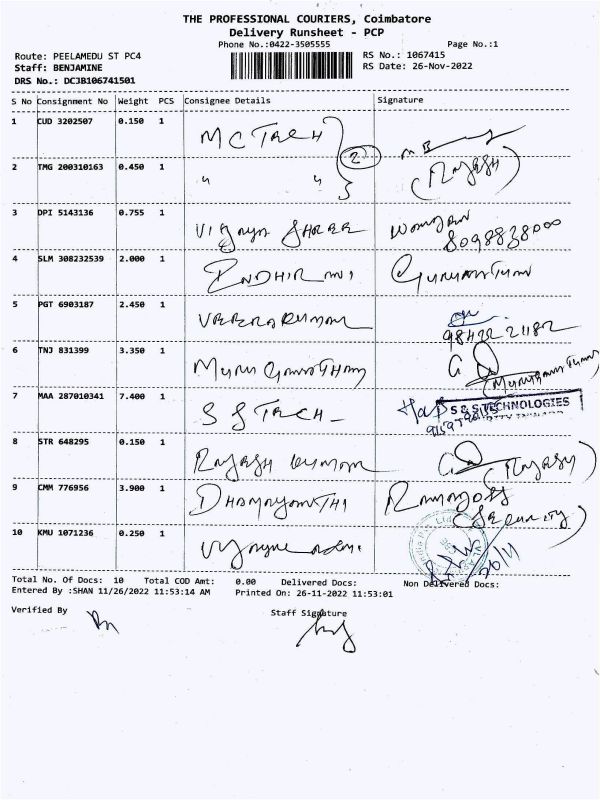 THE PROFESSIONAL COURIERS, Coimbatore
Delivery Runsheet - PCP
Phone No.:0422-3505555 Page No.:1
Route: PEELAMEDU ST PC4 RS No.: 1067415
Staff: BENJAMINE RS Date: 26-Nov-2022
DRS No.: DCJB106741501
S No Consignment No Weight PCS Consignee Details Signature
1 CUD 3202507 0.150 1 MCTECH
2 TMG 200310163 0.450 1 " " 2 (Rajesh)
3 DPI 5143136 0.755 1 8098838000
4 SLM 308232539 2.000 1
5 PGT 6903187 2.450 1 VEERAKUMAR 98422 21182
6 TNJ 831399 3.350 1
7 MAA 287010341 7.400 1 S S TECH S & S TECHNOLOGIES
8 STR 648295 0.150 1 RAJESH KUMAR (Rajesh)
9 CMM 776956 3.900 1 DHAMAYANTHI (Security)
10 KMU 1071236 0.250 1 26/11
Total No. Of Docs: 10 Total COD Amt: 0.00 Delivered Docs: Non Delivered Docs:
Entered By :SHAN 11/26/2022 11:53:14 AM Printed On: 26-11-2022 11:53:01
Verified By Staff Signature